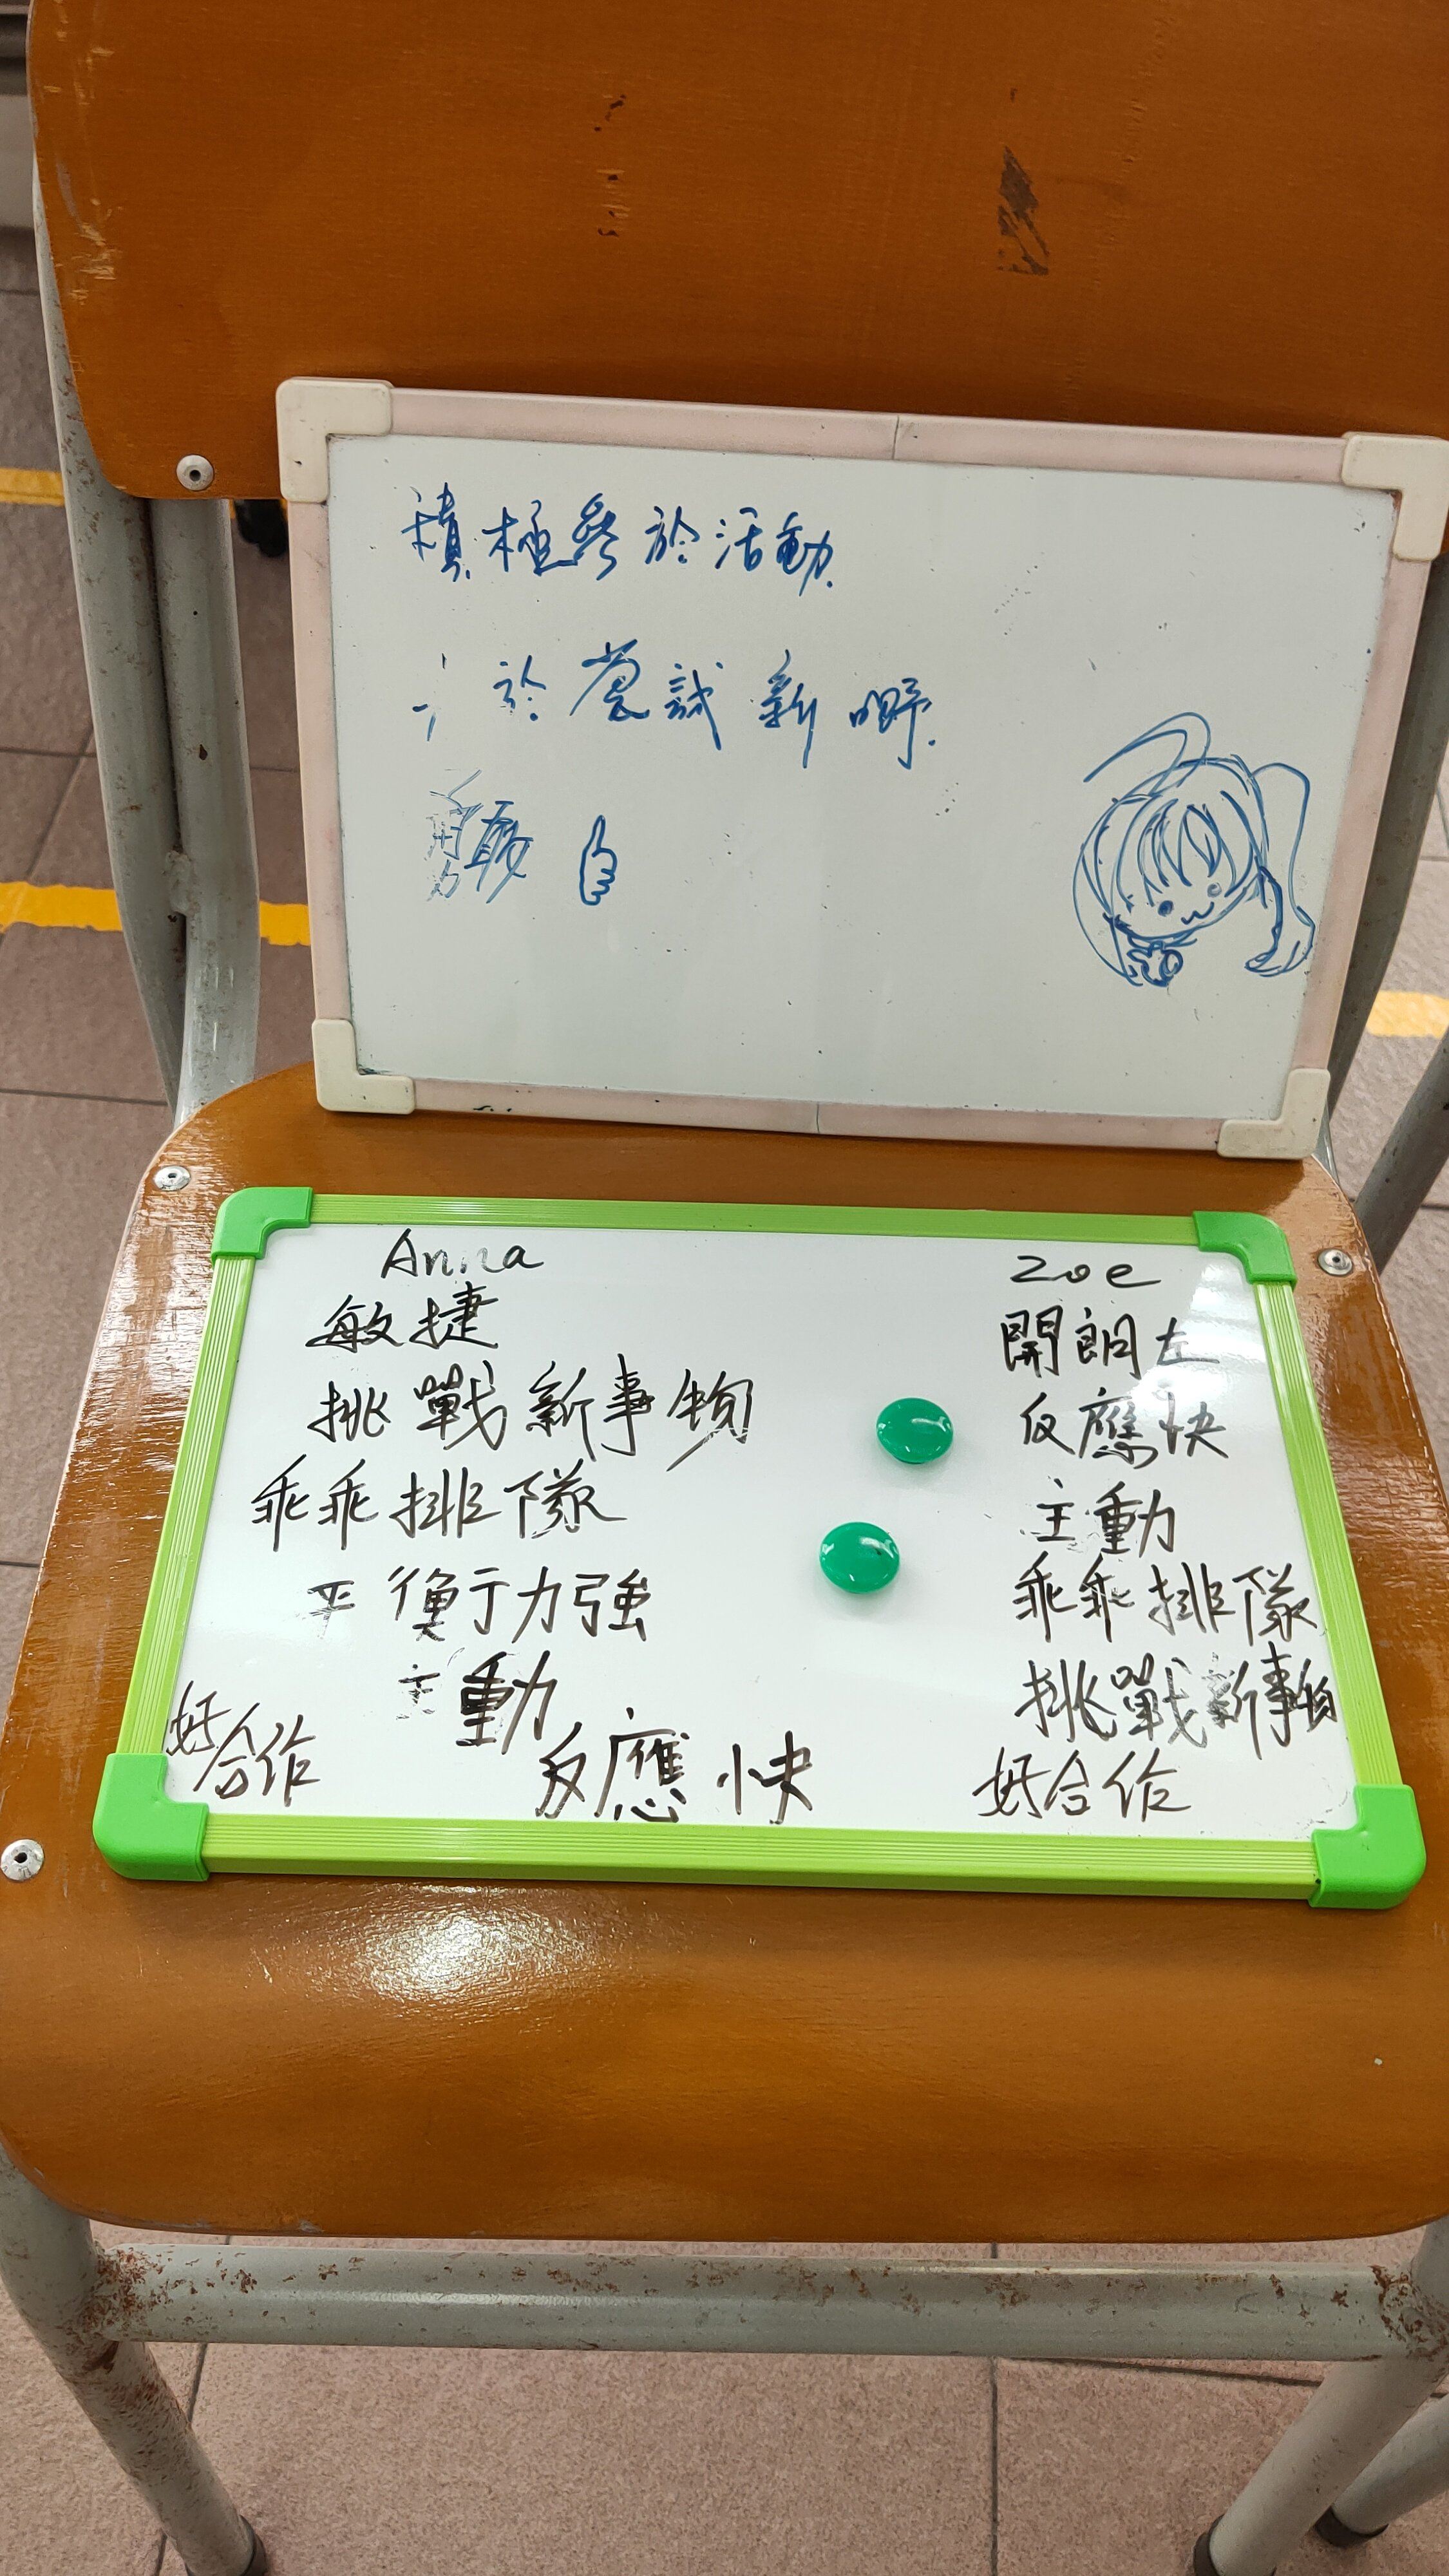 積極參於活動
於嘗試新嘢
勇敢
Anna
敏捷
挑戰新事物
乖乖排隊
平衡力強
主動
好合作
反應快
Zoe
開朗左
反應快
主動
乖乖排隊
挑戰新事物
好合作